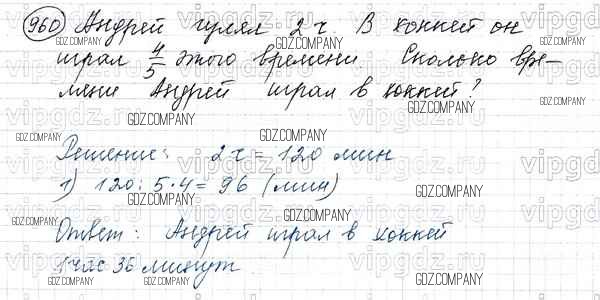 960 Андрей гулял 2 ч В хоккей он
играл 4/5 этого времени Сколько вре-
мени Андрей играл в хоккей?
Решение: 2 ч = 120 мин
1) 120 : 5 · 4 = 96 (мин)
Ответ: Андрей играл в хоккей
1 час 36 минут.
GDZ.COMPANY
vipgdz.ru